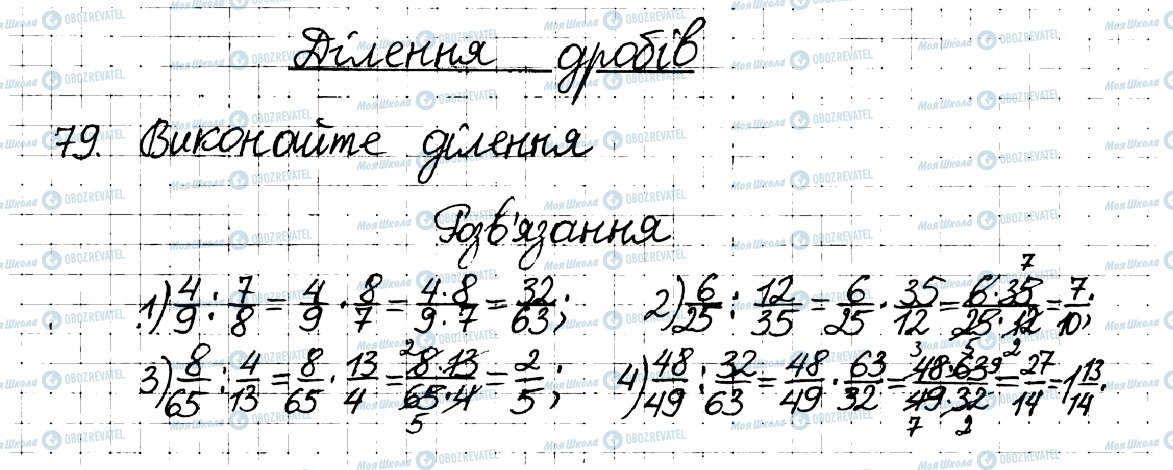 Ділення дробів
79. Виконайте ділення
Розв'язання
1) 4/9 : 7/8 = 4/9 · 8/7 = 4·8/9·7 = 32/63; 2) 6/25 : 12/35 = 6/25 · 35/12 = 6·35/25·12 = 7/10;
3) 8/65 : 4/13 = 8/65 · 13/4 = 8·13/65·4 = 2/5; 4) 48/49 : 32/63 = 48/49 · 63/32 = 48·63/49·32 = 27/14 = 1 13/14.